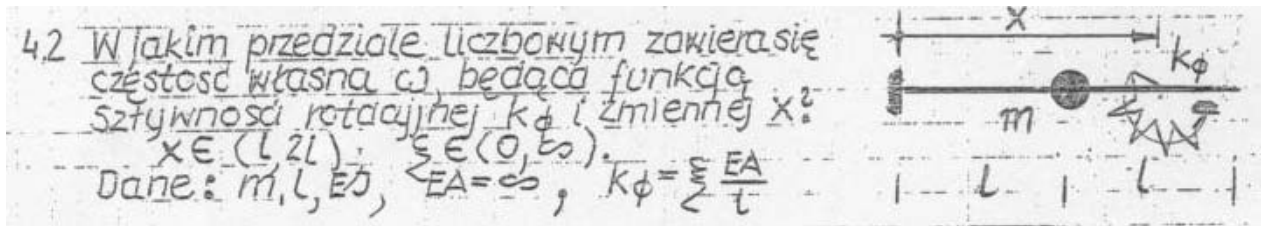 4.2 W jakim przedziale liczbowym zawiera się
częstość własna ω, będąca funkcją
sztywności rotacyjnej kϕ i zmiennej x?
x ∈ (l, 2l) ξ ∈ (0, ∞).
Dane: m, l, EJ, EA = ∞, kϕ = ξ EA/l
x
kϕ
m
l l